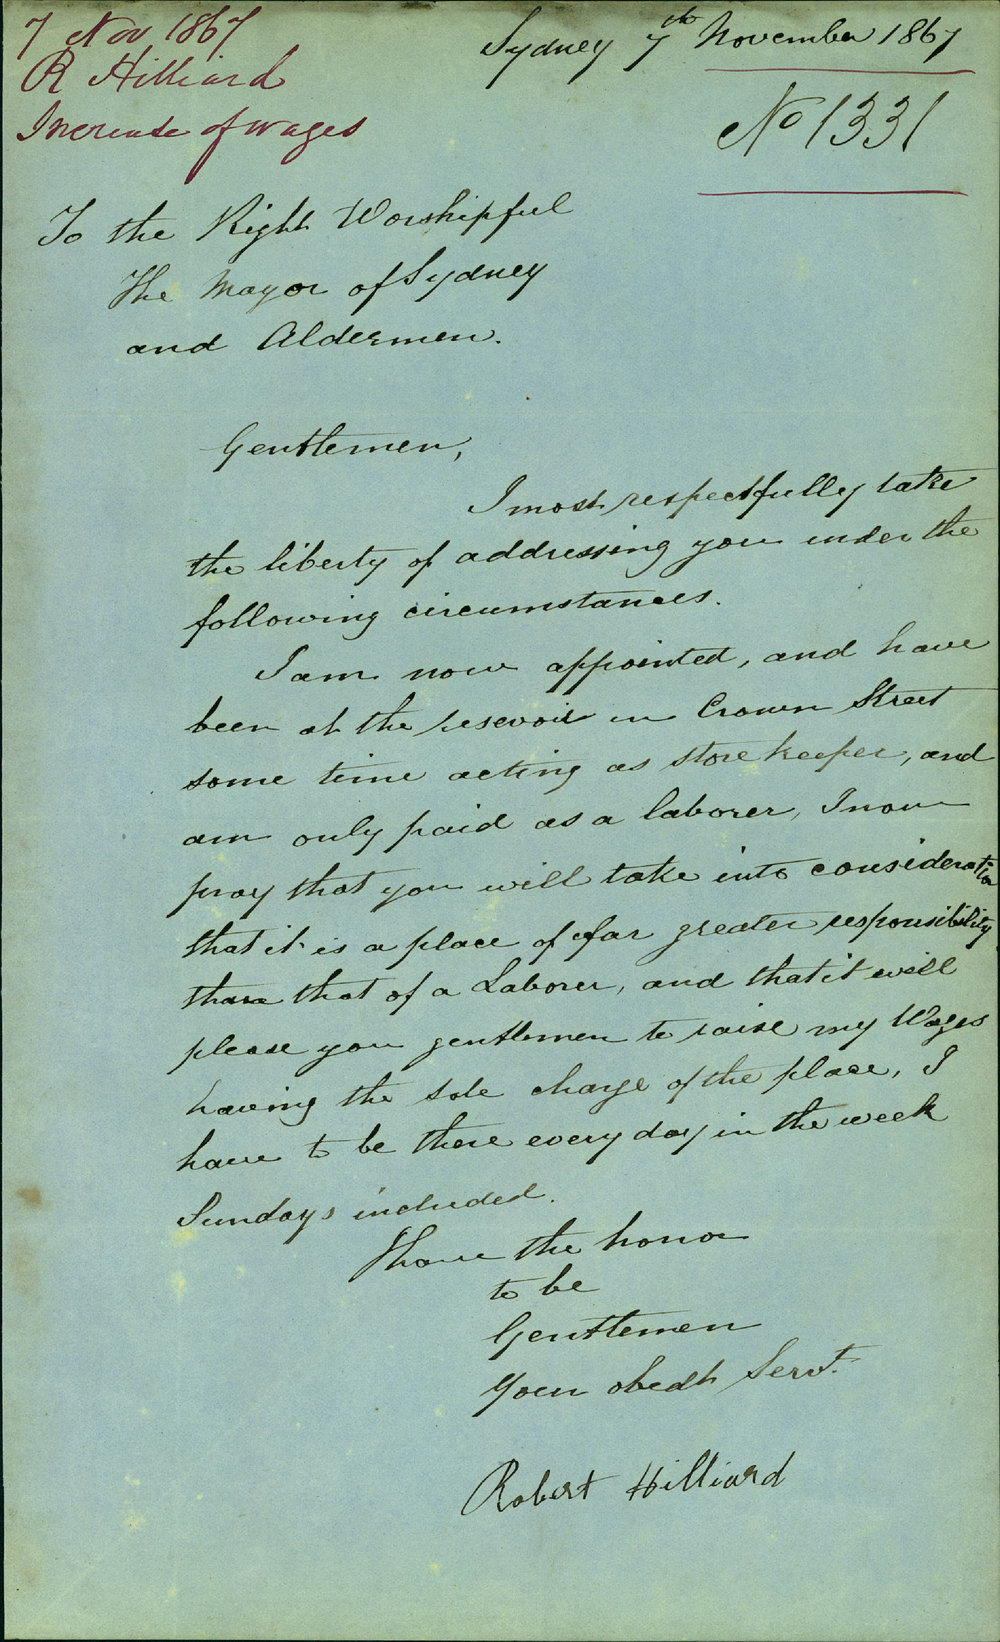 7 Nov 1867
R Hilliard
Increase of wages
Sydney 7th November 1867
No 1331
To the Right Worshipful
The Mayor of Sydney
and Aldermen.
Gentlemen,
I most respectfully take
the liberty of addressing you under the
following circumstances.
I am now appointed, and have
been at the resevoir in Crown Street
some time acting as store keeper, and
am only paid as a laborer, I now
pray that you will take into consideration
that it is a place of far greater responsibility
than that of a Laborer, and that it will
please you gentlemen to raise my Wages
having the sole charge of the place, I
have to be there every day in the week
Sundays included.
I have the honor
to be
Gentlemen
Your obedt Servt.
Robert Hilliard